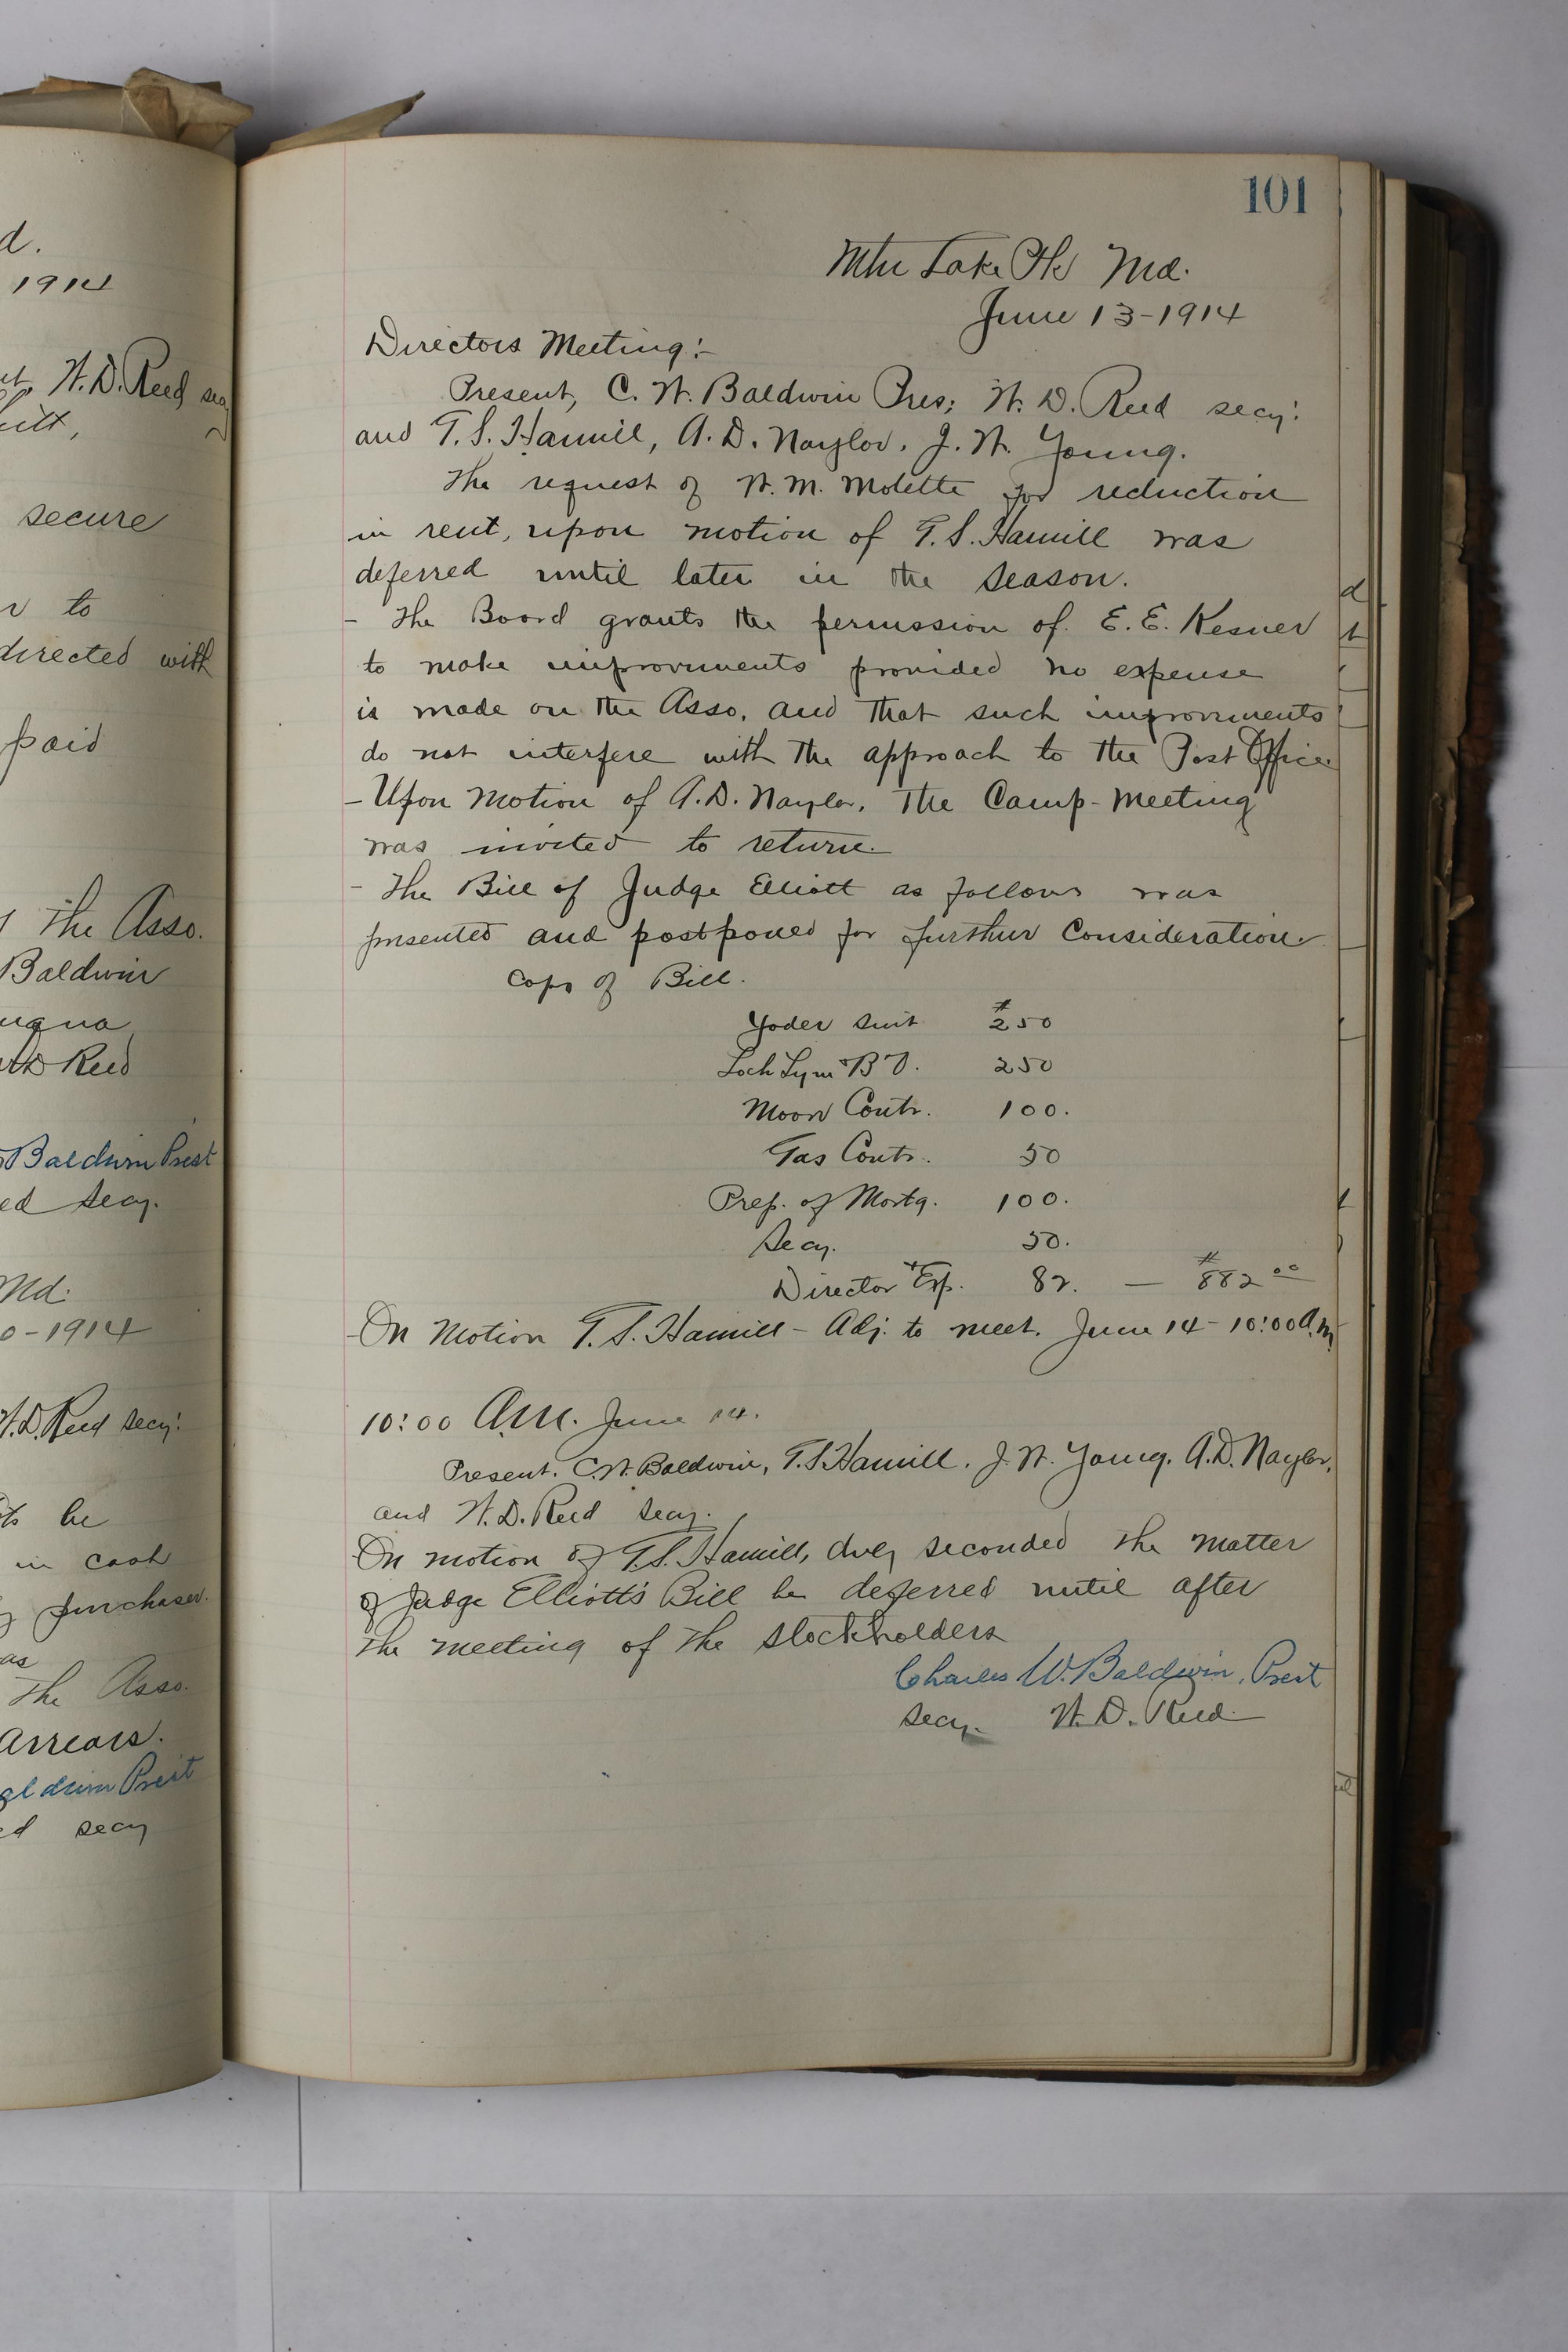 d.
1914
W. D. Reed secy
secure
to
directed with
paid
the Asso.
Baldwin
Reed
Baldwin Prest
ed Secy.
Md.
0-1914
W. D. Reed secy:
be
in cash
purchaser.
as
The Asso.
Arrears.
aldwin Prest
ed secy
101
Mtn Lake Pk Md.
June 13-1914
Directors Meeting:-
Present, C. W. Baldwin Pres; W. D. Reed secy:
and T. S. Hamill, A. D. Naylor, J. W. Young.
The request of W. M. Molette for reduction
in rent, upon motion of T. S. Hamill was
deferred until later in the season.
- The Board grants the permission of E. E. Kesner
to make improvments provided no expense
is made on the Asso. and that such improvments
do not interfere with the approach to the Post Office
- Upon Motion of A. D. Naylor, The Camp-Meeting
was invited to return.
- The Bill of Judge Elliott as follows was
presented and postponed for further Consideration.
Copy of Bill.
Yoder suit $250
Loch Lynn + B O. 250
Moon Contr. 100.
Gas Contr. 50
Prep. of Mortg. 100.
Secy. 50.
Director + Exp. 82. — $882 00
-On Motion T. S. Hamill - Adj. to meet. June 14 - 10:00 A.M.
10:00 A.M. June 14.
Present. C. W. Baldwin, T. S. Hamill, J. W. Young, A. D. Naylor,
and W. D. Reed Secy.
On motion of T. S. Hamill, duly seconded the matter
of Judge Elliott's Bill be deferred until after
the meeting of the Stockholders
Charles W. Baldwin, Prest
Secy. W. D. Reed.